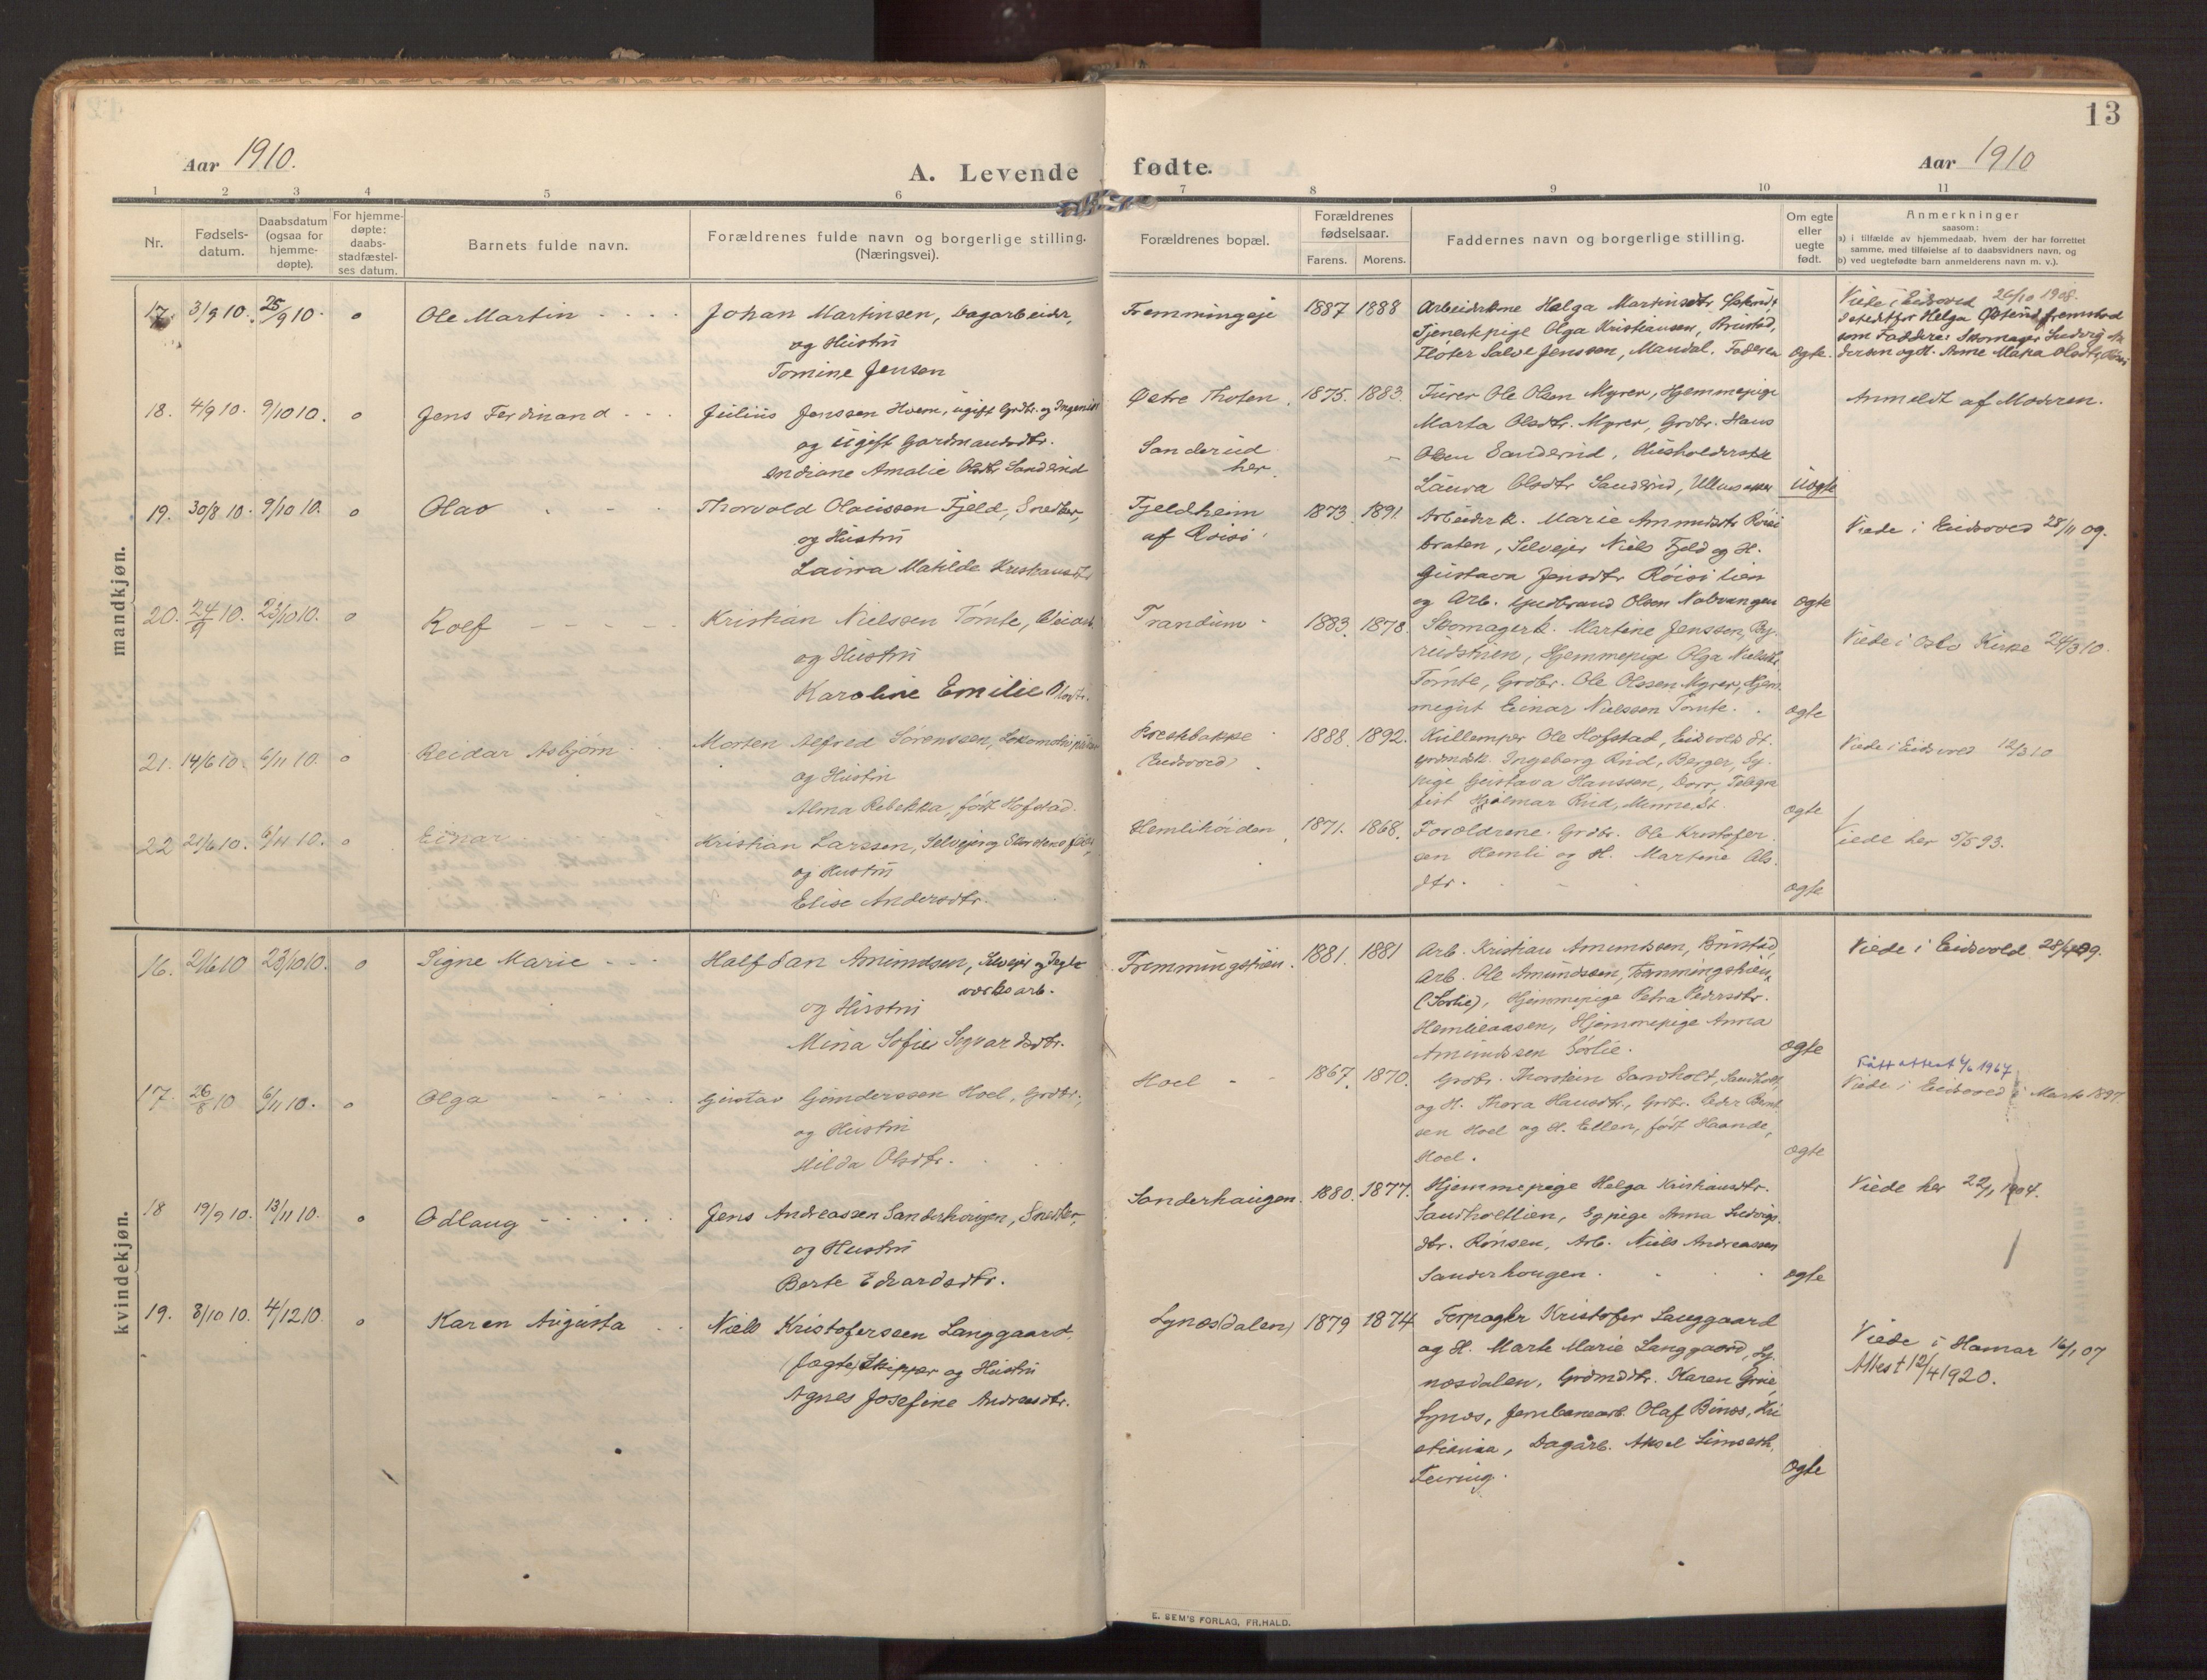 13
Aar 1910.
A. Levende fødte.
Aar 1910
1 2 3 4 5 6 7 8 9 10 11
Nr.
Fødsels-
datum.
Daabsdatum
(ogsaa for
hjemme-
døpte).
For hjemme-
døpte:
daabs-
stadfæstel-
ses datum.
Barnets fulde navn.
Forældrenes fulde navn og borgerlige stilling.
(Næringsvei).
Forældrenes bopæl.
Forældrenes
fødselsaar.
Farens. Morens.
Faddernes navn og borgerlige stilling.
Om egte
eller
uegte
født.
Anmerkninger
saasom:
a) i tilfælde av hjemmedaab, hvem der har forrettet
samme, med tilføielse af to daabsvidners navn, og
b) ved uegtefødte barn anmelderens navn m. v.).
mandkjøn.
17. 3/9 10. 25/9 10. o Ole Martin
Johan Martinsen, Dagarbeider,
og Hustru
Tomine Jensen
Fremmingeje 1887 1888
Arbeiderkone Helga Martinsdtr.
Tjenestepige Olga Kristiansen,
Fløter Salve Jenssen, Mandal. Faderen
egte.
Viede i Eidsvold 26/10 1908.
Istedetfor Helga Østend fremstod
som Faddere Skomager Ludvig An
dersen og H. Anne Maria Olsdtr.
18. 4/9 10. 9/10 10. o Jens Ferdinand
Julius Jenssen Hvem, ugift Grdbr. og Ingeniør
og ugift Gardmandsdtr.
Indiane Amalie Olsdtr Sanderud
Østre Thoten 1875. 1883.
Sanderud
her.
Furer Ole Olsen Myrer, Hjemmepige
Marta Olsdtr. Myrer, Grdbr. Hans
Olsen Sanderud, Husholderske
Laura Olsdtr Sanderud,
uegte
Anmeldt af Moderen.
19. 30/8 10. 9/10 10. o Olav
Thorvold Olaussen Fjeld, Snedker,
og Hustru
Laura Matilde Kristiansdtr
Fjeldheim
af Røisi
1873 1891.
Arbeiderk. Marie Amundsdtr Røisi
braten, Selveier Niels Fjeld og H.
Gustava Jensdtr Røisilien
og Arb. Gudbrand Olsen Nabvangen
egte
Viede i Eidsvold 28/11 09.
20. 24/9 10. 23/10 10. o Rolf
Kristian Nielssen Tömte, Veiarb.
og Hustru
Karoline Emilie Olsdtr.
Trandum 1883. 1878.
Skomagerk. Martine Jenssen, By-
rudstuen, Hjemmepige Olga Nielsdtr.
Tömte, Grdbr. Ole Olssen Myrer, Hjem
megut Einar Nielssen Tömte.
egte
Viede i Oslo Kirke 24/3 10.
21. 14/6 10. 6/11 10. o Reidar Asbjørn
Morten Alfred Sørenssen, Lokomotivpudser
og Hustru
Alma Rebekka, født Hofstad.
Prestbakke
Eidsvold
1888. 1892.
Kullemper Ole Hofstad, Eidsvold St.
Grdmdtr. Ingeborg Rud, Berger, Sy-
pige Gustava Hanssen, Dorr, Telegra
fist Hjalmar Rud, Minne St.
egte
Viede i Eidsvold 12/3 10
22 21/6 10. 6/11 10. o Einar
Kristian Larssen, Selveier og
og Hustru
Elise Andersdtr.
Hemlihöiden 1871. 1868.
Forældrene. Grdbr. Ole Kristofer
sen Hemli og H. Martine Ols-
dtr.
egte
Viede her 5/5 93.
kvindekjøn.
16. 21/6 10 23/10 10. o Signe Marie
Halfdan Amundsen, Selvejer og Tegl-
værksarb.
og Hustru
Mina Sofie Sigvardsdtr.
Fremmingstuen. 1881. 1881
Arb. Kristian Amundsen,
Arb. Ole Amundsen, Fremmingstuen
(Sørlie), Hjemmepige Petra Pedersdtr.
Hemlieaasen, Hjemmepige Anna
Amundssen Sørlie.
egte
Viede i Eidsvold 09.
17. 26/8 10 6/11 10. o Olga
Gustav Gunderssen Hoel, Grdbr.,
og Hustru
Hilda Olsdtr.
Hoel 1867. 1870.
Grdbr. Thorstein Sandholt, Sandholt,
og H. Thora Hansdtr., Grdbr. Peder Bent
sen Hoel og H. Ellen, født Haande,
Hoel.
egte
Fått attest 1/6 1967
Viede i Eidsvold i Marts 1897.
18 19/9 10. 13/11 10. o Odlaug
Jens Andreassen Sanderhaugen, Snedker,
og Hustru
Berte Edvardsdtr.
Sanderhaugen. 1880. 1877.
Hjemmepige Helga Kristiansdtr.
Sandholtlien, Sypige Anna Ludvigs-
dtr. Rønsen, Arb. Niels Andreassen
Sanderhougen.
egte
Viede her 22/1 1904.
19. 8/10 10. 4/12 10. o Karen Augusta
Niels Kristoferssen Langgaard,
Jagtskipper og Hustru
Agnes Josefine Andreasdtr.
Synæs(dalen) 1879 1874
Forpagter Kristofer Langgaard
og H. Marte Marie Langgaard, Sy
næsdalen, Grdmdtr. Karen Grue
Synæs, Jernbanearb. Olaf Binæs, Kri
stiania, Dagarb. Aksel Limseth,
Feiring.
egte
Viede i Hamar 16/1 07
Attest 12/4 1920.
E. SEM'S FORLAG, FR.HALD.